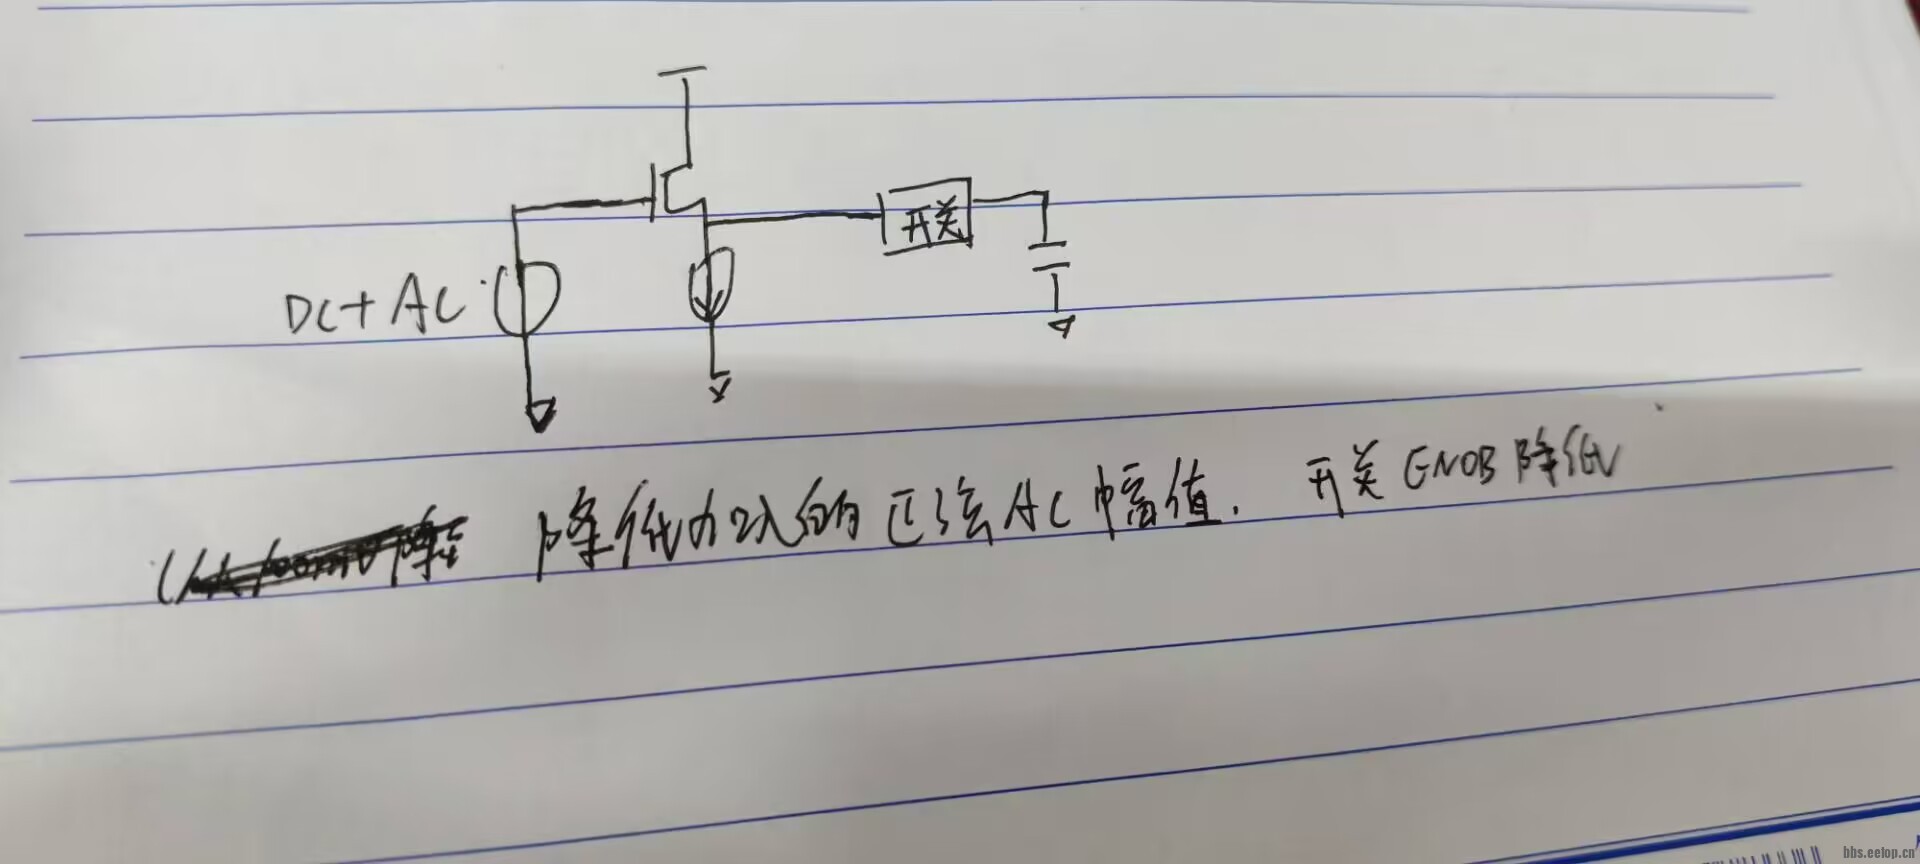 开关
DC+AC
降低加入的正弦AC幅值. 开关ENOB降低
bbs.eetop.cn